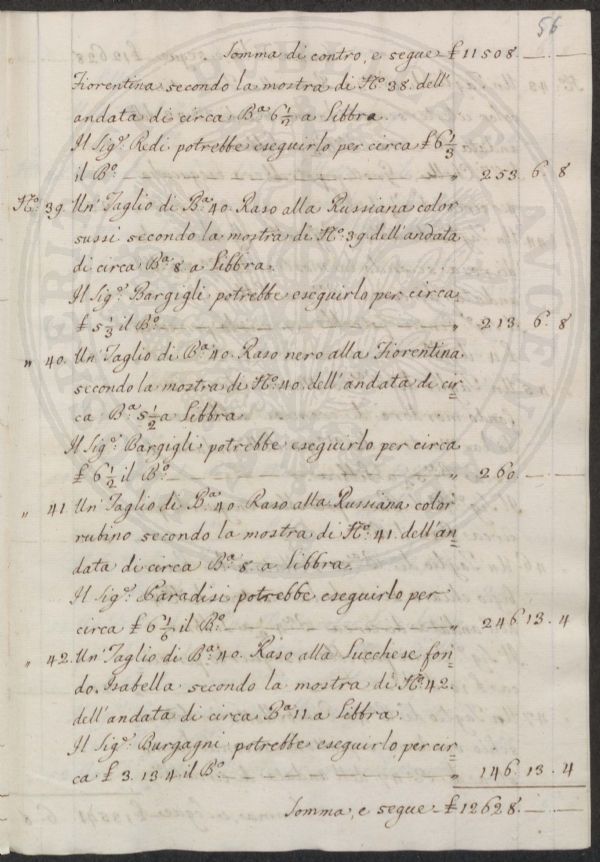 56
Somma di contro, e segue £ 11508.
Fiorentina secondo la mostra di Nº: 38. dell'
andata di circa Bª 6 1/2 a Libbra.
Il Sigº: Redi potrebbe eseguirlo per circa £ 6 1/3
il Bº. " 253. 6. 8
Nº: 39. Un' Taglio di Bª 40. Raso alla Russiana color
sussi secondo la mostra di Nº: 39 dell'andata
di circa Bª 8 a Libbra.
Il Sigº: Bargigli potrebbe eseguirlo per circa
£ 5 1/3 il Bº. " 213. 6. 8
" 40. Un' Taglio di Bª 40. Raso nero alla Fiorentina
secondo la mostra di Nº: 40. dell'andata di cir=
ca Bª 5 1/2 a Libbra
Il Sigº: Bargigli potrebbe eseguirlo per circa
£ 6 1/2 il Bº. " 260.
" 41. Un' Taglio di Bª 40. Raso alla Russiana color
rubino secondo la mostra di Nº: 41. dell'an=
data di circa Bª 8. a libbra.
Il Sigº: Paradisi potrebbe eseguirlo per
circa £ 6 1/6 il Bº. " 246. 13. 4
" 42. Un' Taglio di Bª 40. Raso alla Lucchese fon=
do. Isabella secondo la mostra di Nº: 42.
dell'andata di circa Bª 11. a Libbra.
Il Sigº: Burgagni potrebbe eseguirlo per cir=
ca £ 3. 13. 4 il Bº. " 146. 13. 4
Somma, e segue £ 12628.